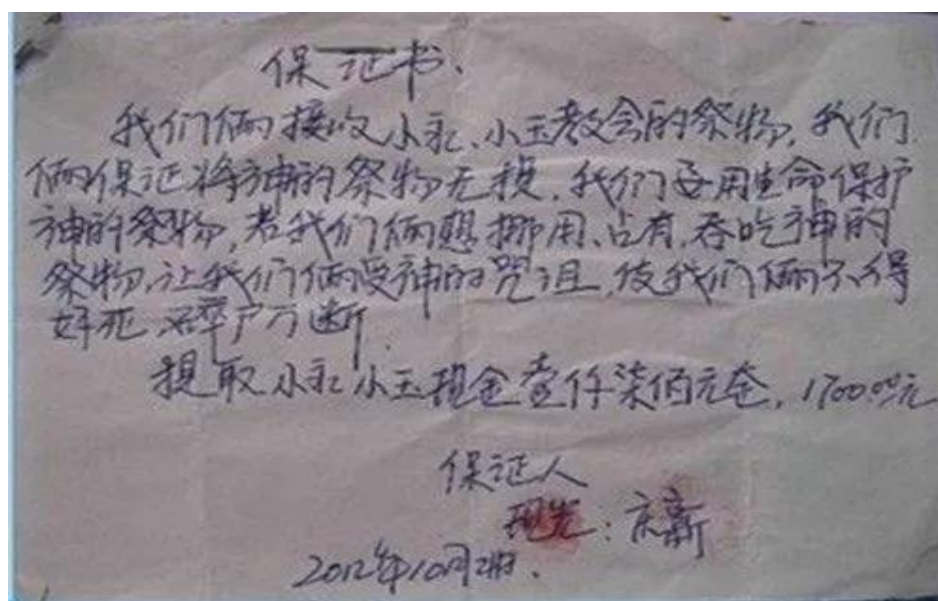 保证书.
我们俩接收小礼、小玉教会的祭物,我们
俩保证将神的祭物无损,我们要用生命保护
神的祭物,若我们俩想挪用、占有、吞吃神的
祭物,让我们俩受神的咒诅,使我们俩不得
好死 碎尸万断.
提取小礼小玉现金壹仟柒佰元全,1700.00元
保证人
:京新
2012年10月2